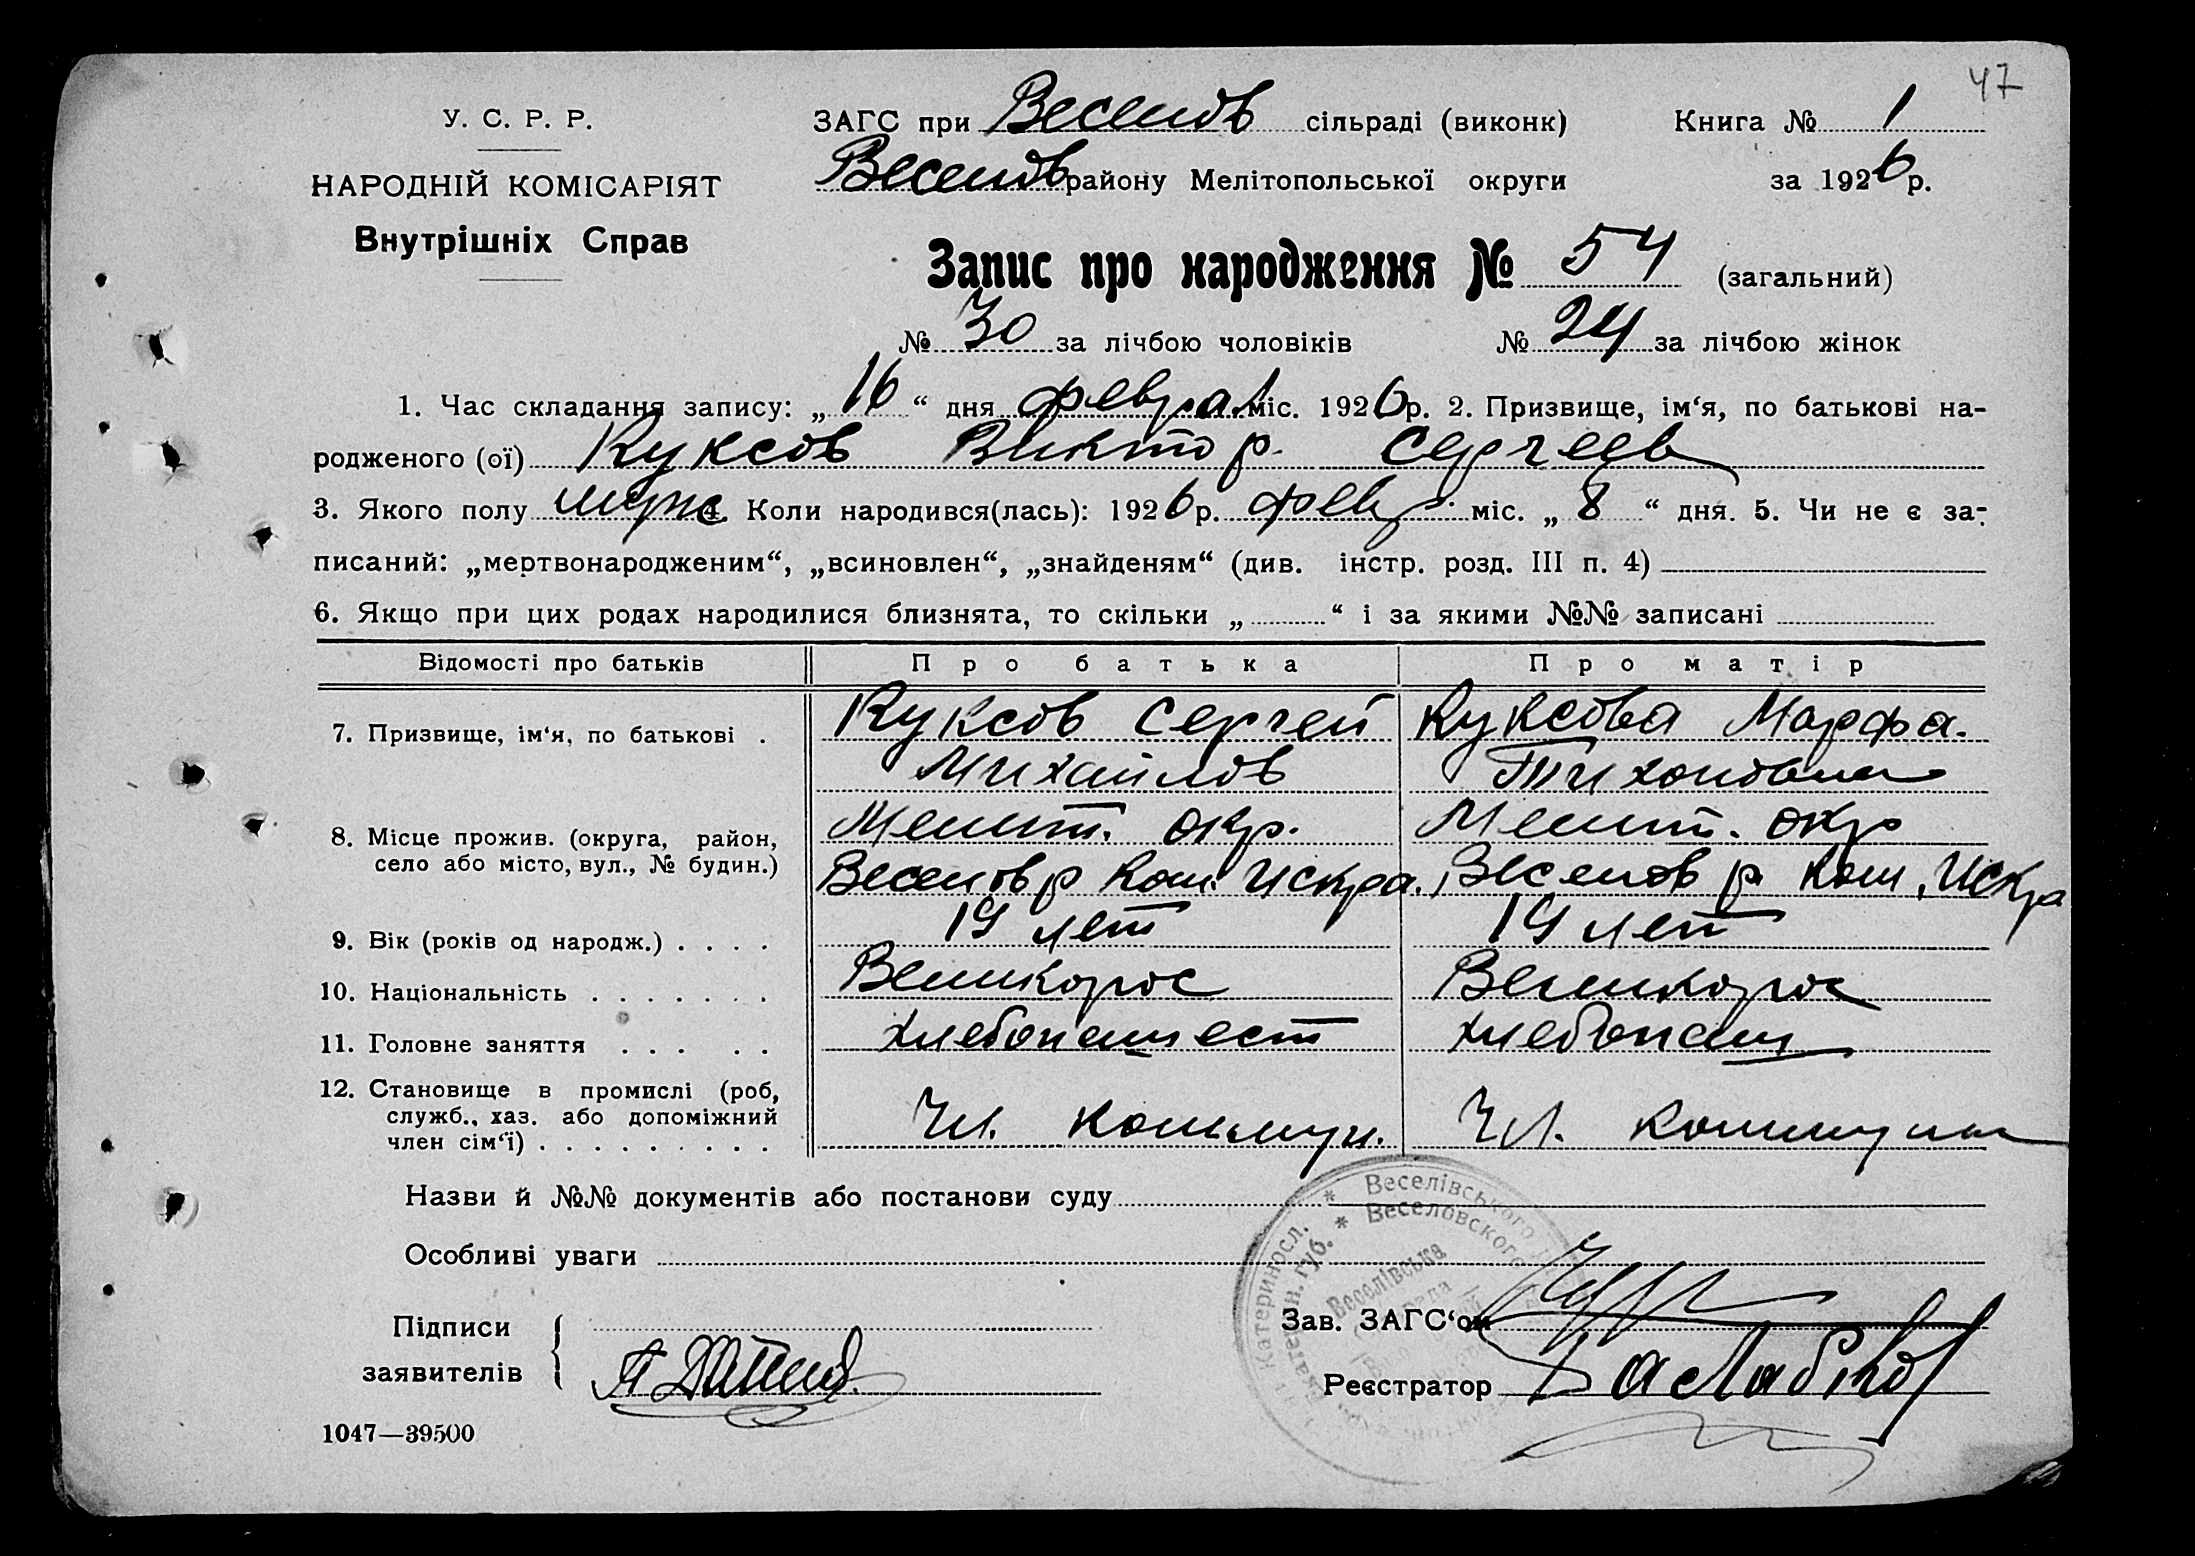 47
У. С. Р. Р.
НАРОДНІЙ КОМІСАРІЯТ
Внутрішніх Справ
ЗАГС при Веселов сільраді (виконк) Книга № 1
Веселов району Мелітопольської округи за 1926 р.
Запис про народження № 54 (загальний)
№ 30 за лічбою чоловіків № 24 за лічбою жінок
1. Час складання запису: „ 16 “ дня феврал міс. 1926 р. 2. Призвище, ім‘я, по батькові на-
родженого (ої) Куксов Виктор. Сергеев
3. Якого полу муж 4. Коли народився(лась): 1926 р. февр. міс. „ 8 “ дня. 5. Чи не є за-
писаний: „мертвонародженим“, „всиновлен“, „знайденям“ (див. інстр. розд. III п. 4)
6. Якщо при цих родах народилися близнята, то скільки „ “ і за якими №№ записані
Відомості про батьків Про батька Про матір
7. Призвище, ім‘я, по батькові . Куксов Сергей Куксова Марфа.
Михайлов Тихоновна
8. Місце прожив. (округа, район,
село або місто, вул., № будин.)
Мелит. окр. Мелит. окр
Веселов р Ком. Искра. Веселов р. Ком. Искра
9. Вік (років од народж.) . . . . 19 лет 19 лет
10. Національність . . . . . . . Великорос Великорос
11. Головне заняття . . . . . хлебопашест хлебопаш
12. Становище в промислі (роб,
служб., хаз. або допоміжний
член сім‘ї) . . . . . . . . . Чл. коммун. Чл. коммуны
Назви й №№ документів або постанови суду
Особливі уваги
Веселівського
Веселовского
Катериносл.
Катерин. губ.
Веселівська
Підписи
заявителів
Зав. ЗАГС‘ом
Реєстратор
1047—39500